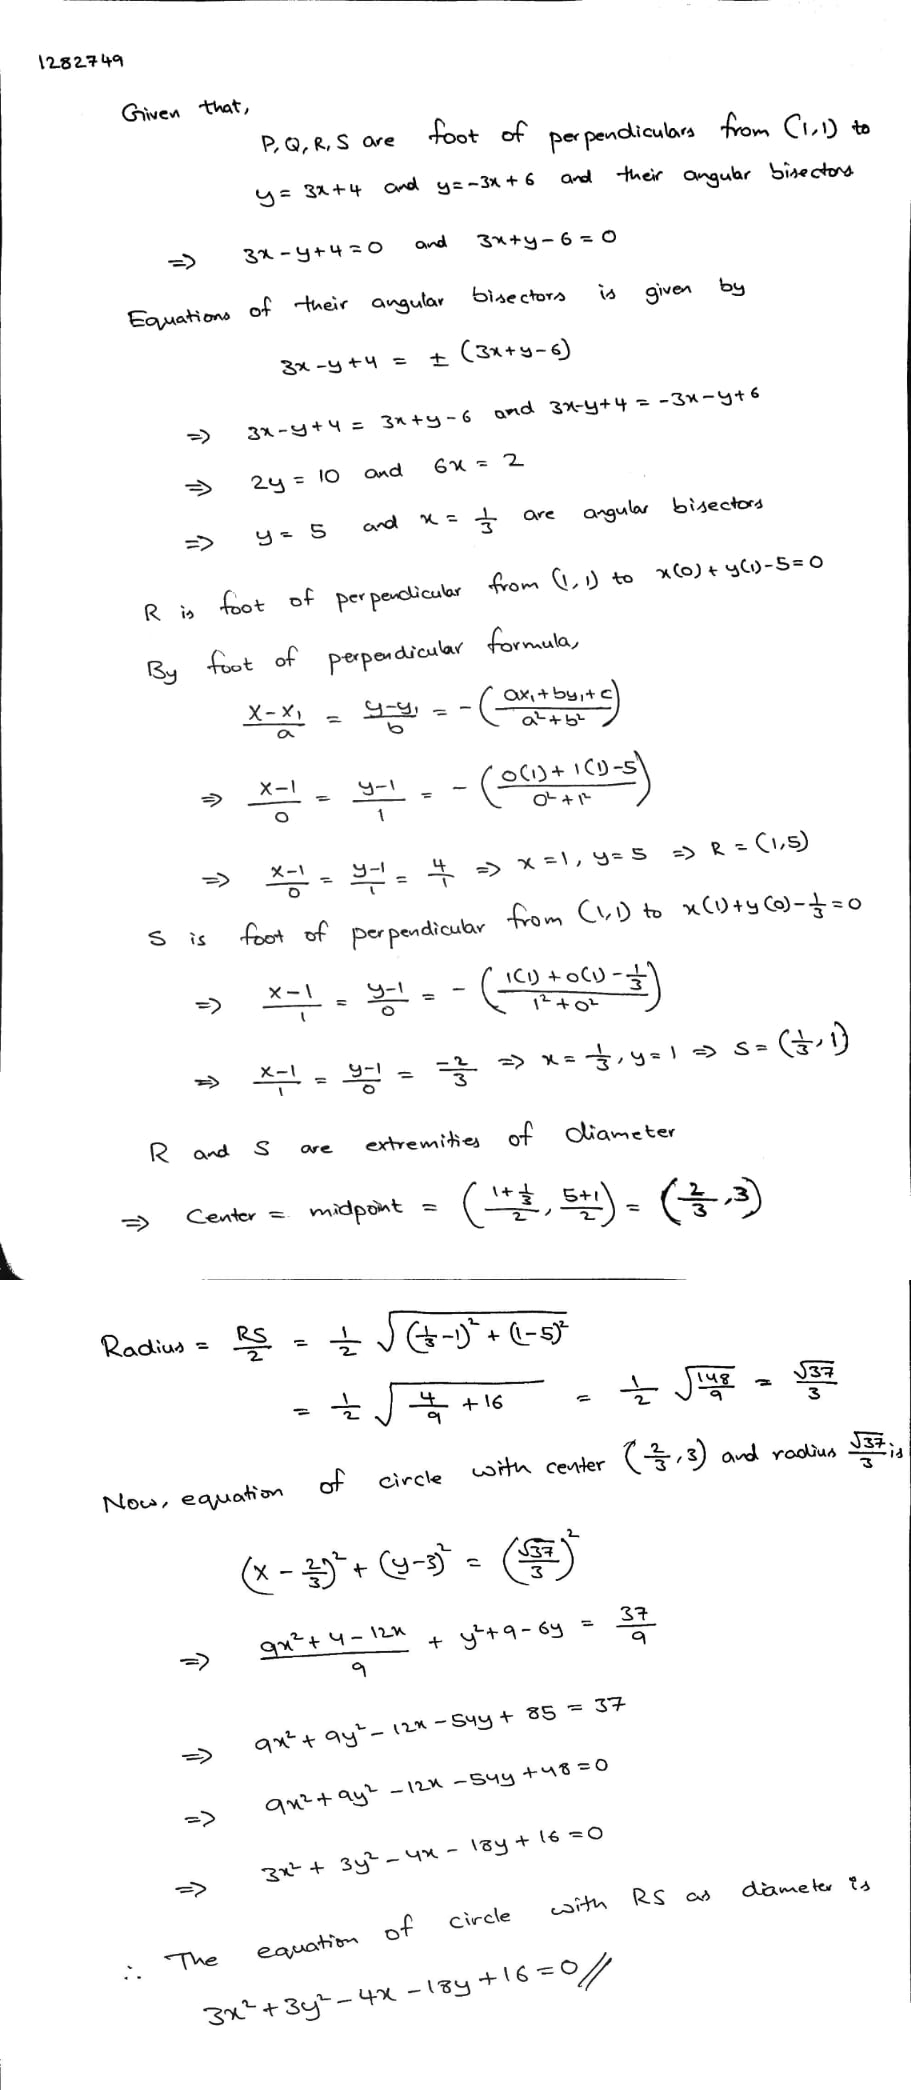 1282749
Given that,
P, Q, R, S are foot of perpendiculars from (1,1) to
y = 3x+4 and y = -3x + 6 and their angular bisectors
⇒ 3x - y + 4 = 0 and 3x + y - 6 = 0
Equations of their angular bisectors is given by
3x - y + 4 = ± (3x + y - 6)
⇒ 3x - y + 4 = 3x + y - 6 and 3x - y + 4 = -3x - y + 6
⇒ 2y = 10 and 6x = 2
⇒ y = 5 and x = 1/3 are angular bisectors
R is foot of perpendicular from (1,1) to x(0) + y(1) - 5 = 0
By foot of perpendicular formula,
(x - x₁)/a = (y - y₁)/b = -((ax₁ + by₁ + c)/(a² + b²))
⇒ (x-1)/0 = (y-1)/1 = -((0(1) + 1(1) - 5)/(0² + 1²))
⇒ (x-1)/0 = (y-1)/1 = 4/1 ⇒ x = 1, y = 5 ⇒ R = (1,5)
S is foot of perpendicular from (1,1) to x(1) + y(0) - 1/3 = 0
⇒ (x-1)/1 = (y-1)/0 = -((1(1) + 0(1) - 1/3)/(1² + 0²))
⇒ (x-1)/1 = (y-1)/0 = -2/3 ⇒ x = 1/3, y = 1 ⇒ S = (1/3, 1)
R and S are extremities of diameter
⇒ Center = midpoint = ((1 + 1/3)/2, (5+1)/2) = (2/3, 3)
Radius = RS/2 = 1/2 √((1/3 - 1)² + (1-5)²)
= 1/2 √(4/9 + 16) = 1/2 √(148/9) = √37/3
Now, equation of circle with center (2/3, 3) and radius √37/3 is
(x - 2/3)² + (y-3)² = (√37/3)²
⇒ (9x² + 4 - 12x)/9 + y² + 9 - 6y = 37/9
⇒ 9x² + 9y² - 12x - 54y + 85 = 37
⇒ 9x² + 9y² - 12x - 54y + 48 = 0
⇒ 3x² + 3y² - 4x - 18y + 16 = 0
∴ The equation of circle with RS as diameter is
3x² + 3y² - 4x - 18y + 16 = 0 //